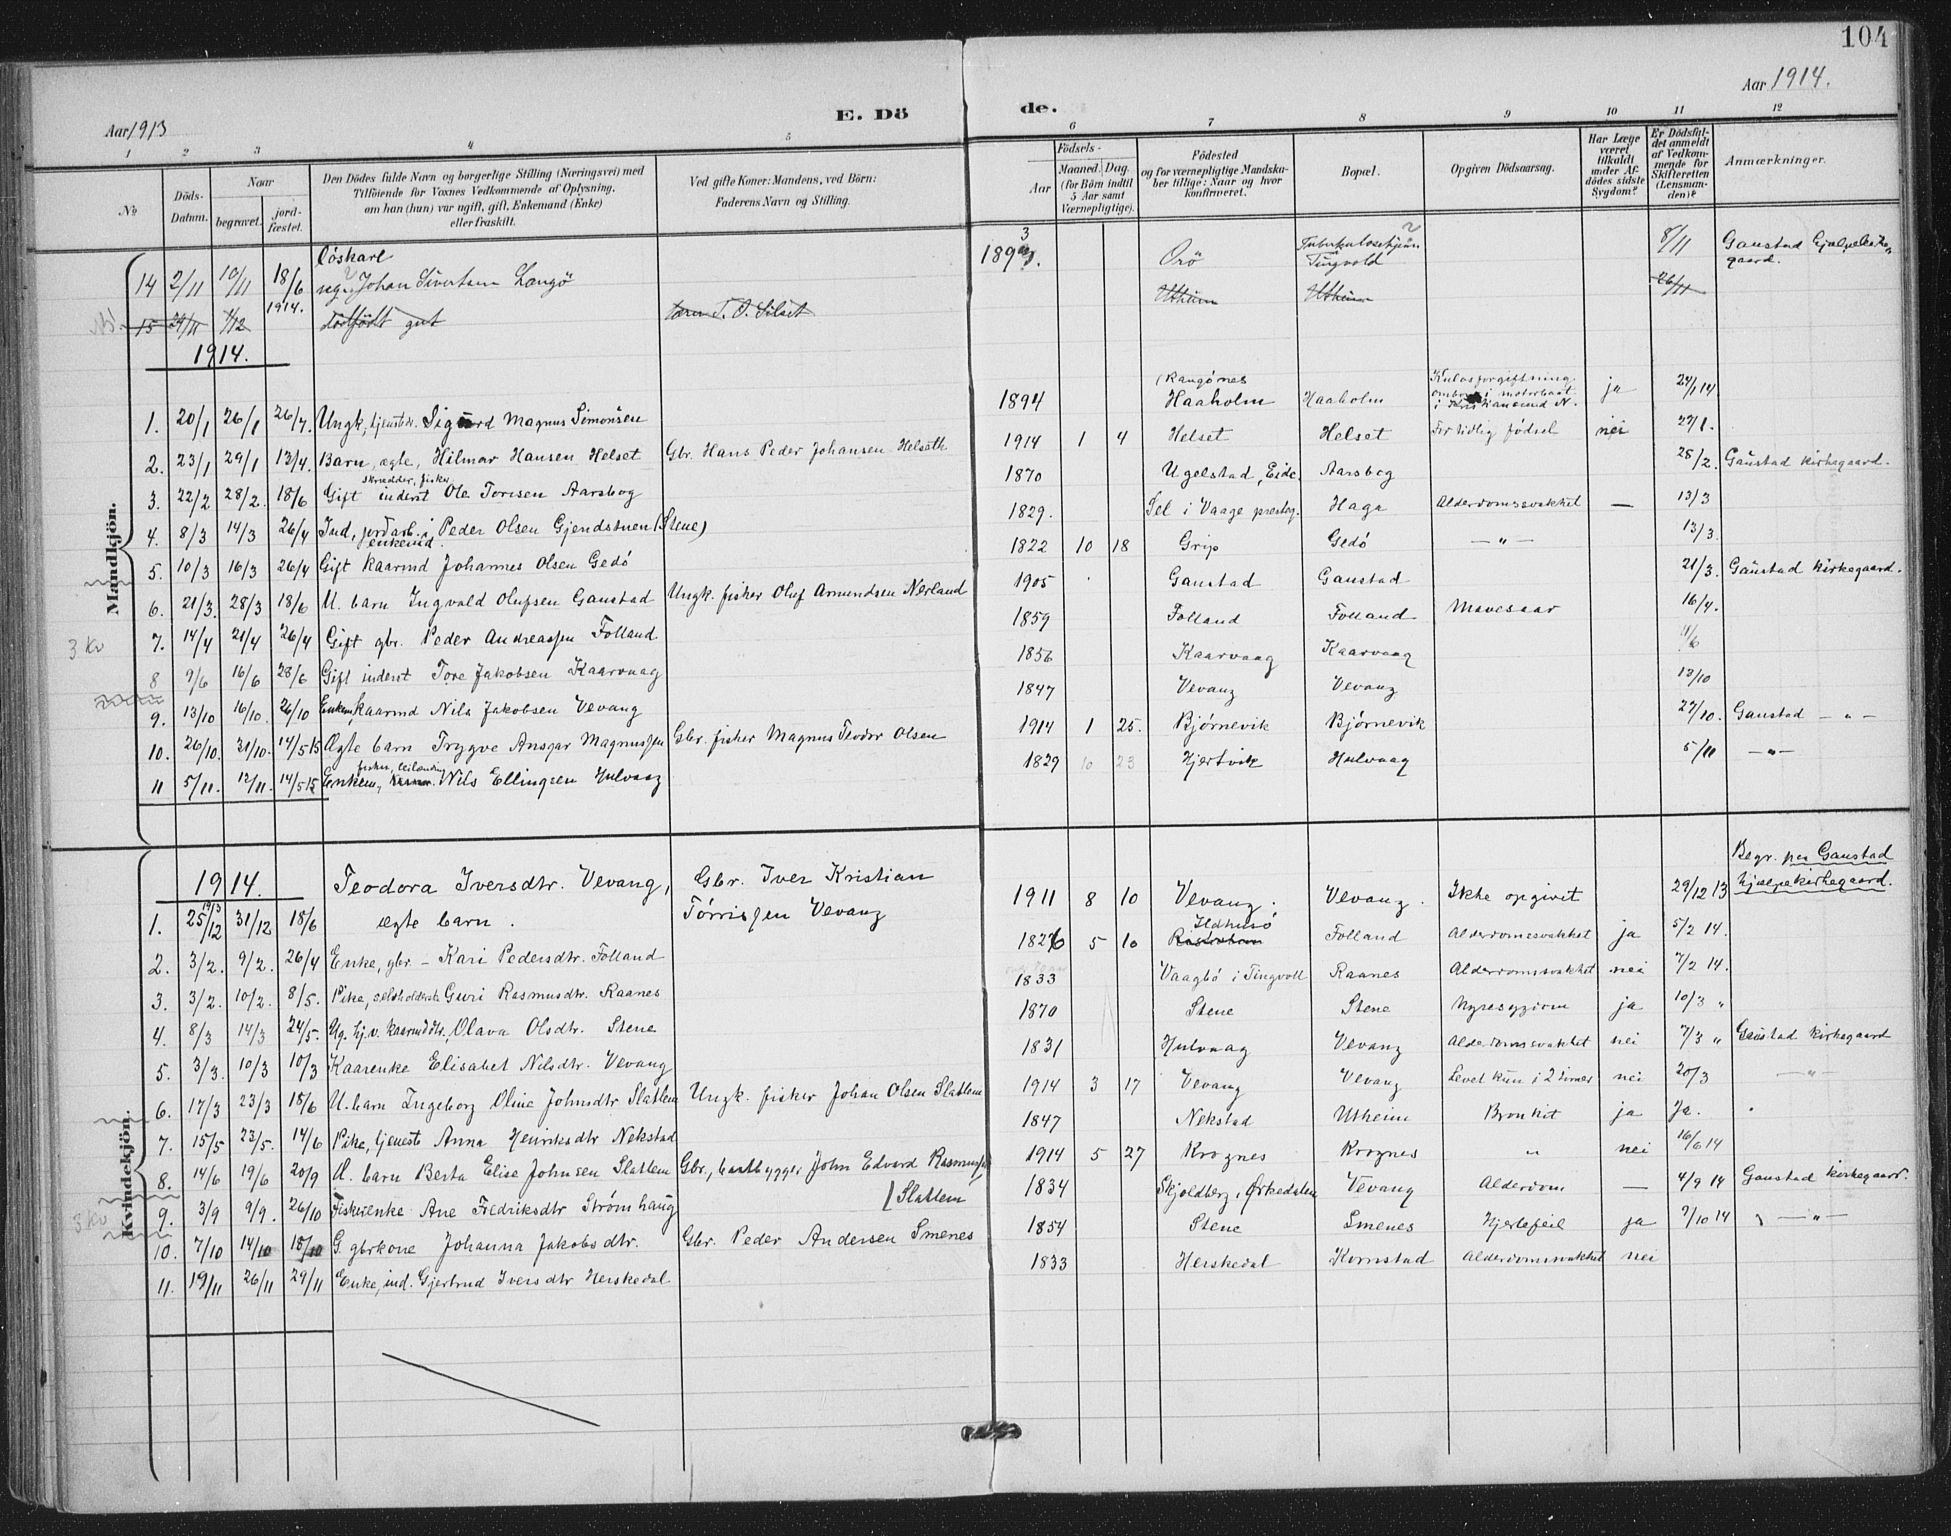 104
Aar 1913 E. Dö de. Aar 1914.
1 2 3 4 5 6 7 8 9 10 11 12
No. Döds-Datum. Naar begravet. jordfæstet. Den Dödes fulde Navn og borgerlige Stilling (Næringsvei) med Tilföiende for Voxnes Vedkommende af Oplysning, om han (hun) var ugift, gift, Enkemand (Enke) eller fraskilt. Ved gifte Koner: Mandens, ved Börn: Faderens Navn og Stilling. Födsels- Aar Maaned. Dag. (for Börn indtil 5 Aar samt Værnepligtige). Födested og for værnepligtige Mandskaber tillige: Naar og hvor konfirmeret. Bopæl. Opgiven Dödsaarsag. Har Læge været tilkaldt under Afdödes sidste Sygdom? Er Dödsfaldet anmeldt af Vedkommende for Skifteretten (Lensmanden)? Anmærkninger.
Mandkjön.
14 2/11 10/11 18/6 1914. löskarl ug. Johan Sivertsen Langö Orö Tuberkulosehjem Tingvold 8/11 Gaustad hjælpekirkegaard.
15 29/11 4/12 Dödfödt gut T. O. Silset Utheim Utheim 26/11
1914.
1. 20/1 26/1 26/4 Ungk, tjenstdr. Sigurd Magnus Simonsen 1894 (Rangönes Haaholm Haaholm Kulosforgiftning ombord i motorbaat i Kristiansund N. ja 24/1 14
2. 23/1 29/1 13/4 Barn, ægte, Hilmar Hansen Helset Gbr. Hans Peder Johansen Helseth 1914 1 4 Helset Helset For tidlig födsel nei 27/1.
3. 22/2 28/2. 18/6 Gift skrædder, fisker inderst Ole Toresen Aarsbog 1870 Ugelstad, Eide. Aarsbog 28/2. Gaustad kirkegaard.
4. 8/3 14/3 26/4 Ind, jordarb., enkemd. Peder Olsen Gjendstuen (Stene) 1829. Sel i Vaage prestg. Haga Alderdomssvakhet — 13/3
5. 10/3 16/3 26/4 Gift kaarmd Johannes Olsen Gedö 1822 10 18 Grip Gedö — " — 13/3.
6. 21/3. 28/3 18/6 U. barn Ingvald Olufsen Gaustad Ungk. fisker Oluf Amundsen Nerland 1905 Gaustad Gaustad 21/3. Gaustad kirkegaard.
7. 14/4 21/4 26/4 Gift gbr. Peder Andreassen Folland 1859 Folland Folland Mavesaar 16/4.
3 kv
8 9/6 16/6 28/6 Gift inderst Tore Jakobsen Kaarvaag 1856 Kaarvaag Kaarvaag 11/6
9. 13/10 16/10. 26/10 Enkem, kaarmd Nils Jakobsen Vevang 1847 Vevang Vevang 13/10
10. 26/10. 31/10. 14/5 15 Ægte barn Trygve Ansgar Magnussen Gbr. fisker Magnus Teodor Olsen 1914 1 25. Bjørnevik Bjørnevik 27/10. Gaustad — " —
11 5/11. 12/11. 14/5 15 Enkem, fisker, Nils Ellingsen Hulvaag 1829 10 23 Hjertvik Hulvaag 5/11 — " —
Kvindekjön.
1914.
1. 1913 25/12 31/12 18/6 Teodora Iversdtr. Vevang, ægte barn. Gbr. Iver Kristian Tørrissen Vevang 1911 8 10 Vevang. Vevang. Ikke opgivet 29/12 13 Begr. paa Gaustad hjælpekirkegaard.
2. 3/2. 9/2. 26/4 Enke, gbr. – Kari Pedersdtr. Folland 1826 5 10 Ildhusö Folland Alderdomssvakhet ja 5/2 14.
3. 3/2. 10/2. 8/5. Pike, selvholderske Guri Rasmusdtr. Raanes 1833 Vaagbö i Tingvoll Raanes Alderdomssvakhet nei 7/2 14.
4. 8/3 14/3 24/5. Ug. hj.v. kaarmdsdtr, Olava Olsdtr. Stene 1870 Stene Stene Nyresygdom ja 10/3 "
5. 3/3. 10/3 10/3 Kaarenke Elisabet Nilsdtr. Vevang 1831 Hulvaag Vevang Alderdomssvakhet nei 7/3 " Gaustad kirkegaard
6. 17/3 23/3 18/6 U. barn Ingeborg Oline Johnsdtr Slatlem Ungk. fisker Johan Olsen Slatlem 1914 3 17 Vevang Vevang Levet kun i 2 timer nei 20/3 — " —
7. 15/5 23/5. 14/6 Pike, tjeneste Anna Henriksdtr Nekstad 1847 Nekstad Utheim Bronkit ja Ja.
8. 14/6 19/6 20/9 U. barn Berta Elise Johnsen Slatlem Gbr, baatbygger John Edvard Rasmussen (Slatlem 1914 5 27 Krognes Krognes " nei 16/6 14
3 kv
9. 3/9 9/9. 26/10 Fiskerenke Ane Fredriksdtr Strømhaug 1834 Skjoldberg, Ørkedalen Vevang Alderdom — 4/9 14 Gaustad kirkegaard.
10. 7/10 14/10 18/10 G. gbrkone Johanna Jakobsdtr. Gbr. Peder Andersen Smenes 1854 Stene Smenes Hjertefeil ja 7/10 14 — " —
11. 19/11 26/11 29/11 Enke, ind. Gjertrud Iversdtr Herskedal 1833 Herskedal Kornstad Alderdomssvakhet nei